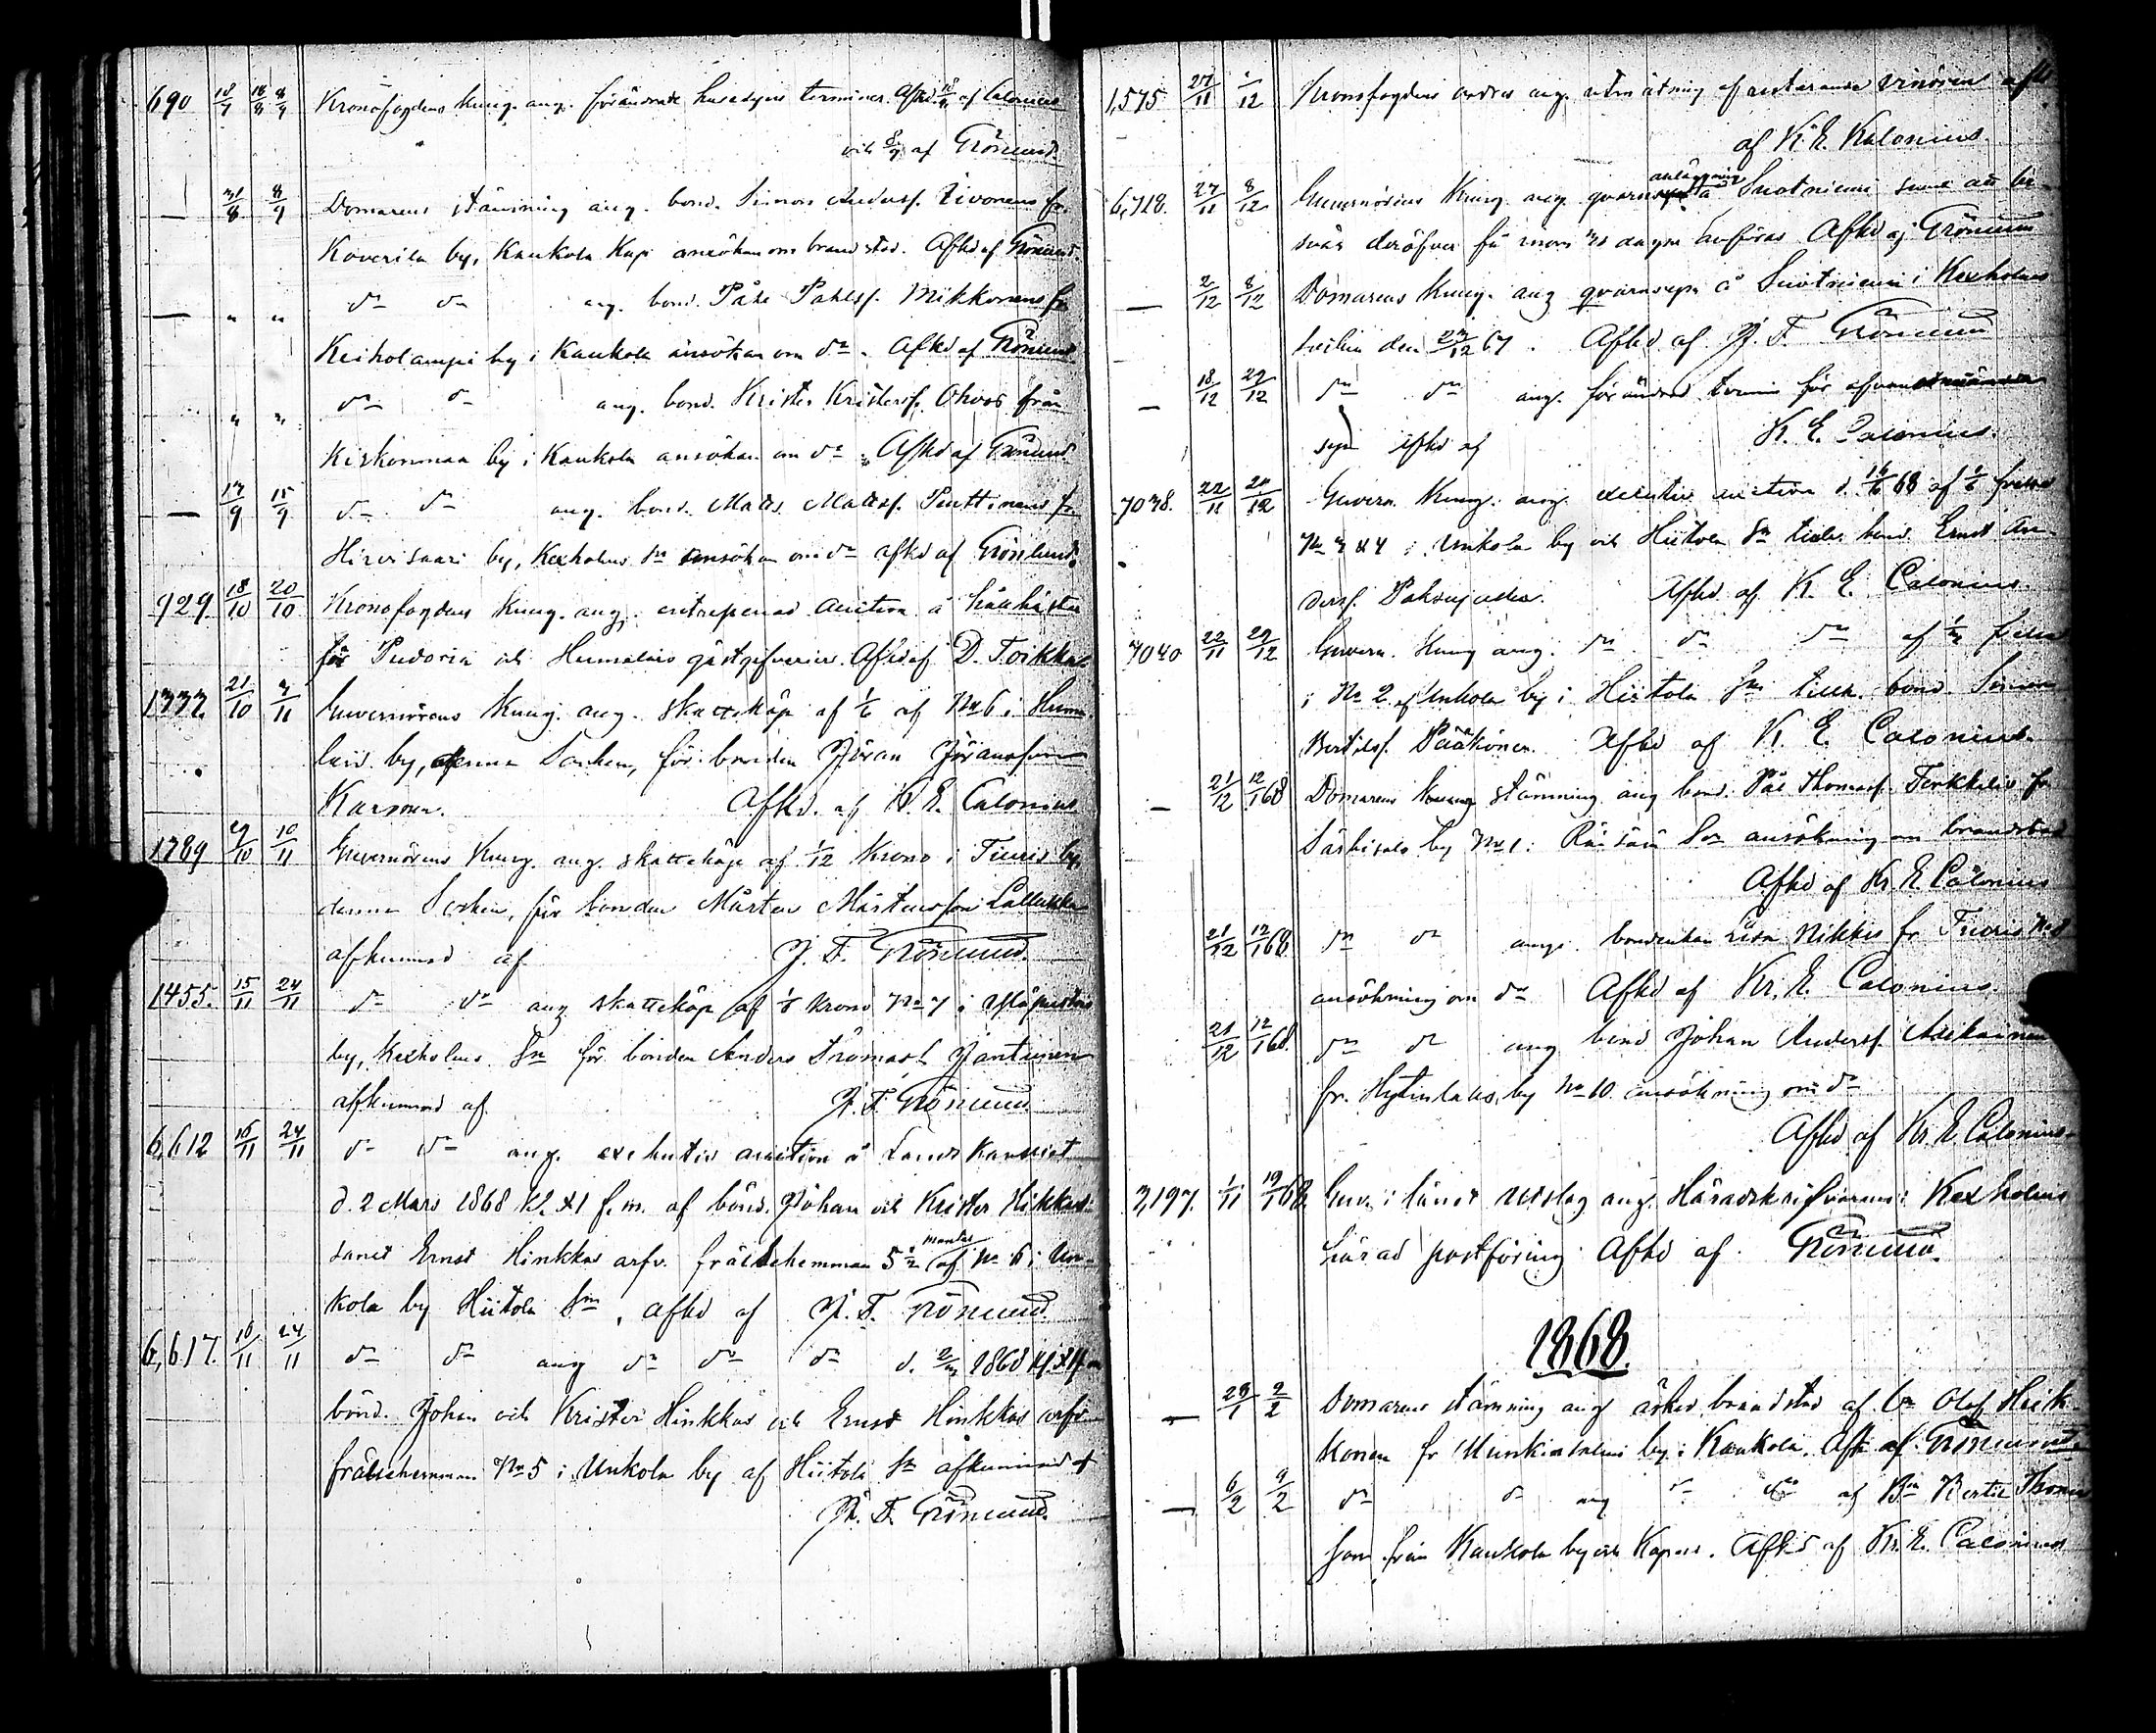 690 18/7 18/8 8/9 Kronofogdens Kung. ang. förändrade husesyns terminer. Afkd 18/8 af Calonius
och 8/9 af Grönlund.
— 31/8 8/9 Domarens stämning ang. bond. Simon Andersf. Iivonens fr.
Koverila by, Kaukola Kap. ansökan om brandstod. Afkd af Grönlund.
— " " dn dn ang. bond. Påhl Pahlsf. Mikkonens fr
Keiholampi by i Kaukola ansökan om dn. Afkd af Grönlund.
" " dn dn ang. bond. Krister Kristersf. Ohvos från
Kiskonmaa by i Kaukola ansökan om dn. Afkd af Grönlund
— 17/9 15/9 dn dn ang. bond. Matts Mattsf. Puttinens fr
Hirvisaari by, Kexholms Sn ansökan om dn afkd af Grönlund.
929. 18/10 20/10 Kronofogdens Kung. ang. entreprenad auction å hållhästar
för Pudoria och Humalais gästgifverier. Afkd af D. Toikka
1337. 21/10 3/11 Guvernörens Kung. ang. skatteköp af 1/6 af No 6 i Huma-
lais by, denna Socken, för bonden Jöran Jöransson
Karonen. Afkd. af K. E. Calonius
1789 29/10 10/11 Guvernörens Kung. ang. skatteköp af 1/12 Krono i Tiuris by
denna Socken, för bonden Mårten Mårtensson Lallukka
afkunnad af J. F. Grönlund.
1455. 15/11 24/11 dn dn ang skatteköp af 1/8 krono No 7 i
by, Kexholms Sn för bonden Anders Tromasf. Jantunen
afkunnad af J. F. Grönlund
6,612 16/11 24/11 dn dn ang. exekutiv auction å Lands Kansliet
d. 2 Mars 1868 Kl. XI f.m. af bönd. Johan och Krister Hinkkas
samt Ernst Hinkkas arfv. frälsehemman 5 1/2 mantal af No 6 i Un-
kola by Hiitola Sn, afkd af J. F. Grönlund.
6,617. 16/11 24/11 dn dn ang dn dn dn d. 2/3 1868 Kl. XI fm
bönd. Johan och Krister Hinkkas och Ernst Hinkkas arfv
frälsehemman No 5 i Unkola by af Hiitola Sn afkunnad af
J. F. Grönlund.
1,575 27/11 1/12 Kronofogdens order ang. utmätning af resterande afkd
af K. E. Kalonius.
6,718. 27/11 8/12 Guvernörens Kung. ang. qvarns anläggning å Suotniemi samt att be-
svär deröfver få inom dagar anföras Afkd af Grönlund
— 2/12 8/12 Domarens Kung. ang qvarnsyn å Suotniemi i Kexholms
Socken den 23/12 67. Afkd. af J. F. Grönlund
— 18/12 29/12 dn dn ang. förändrad termin för
syn Afkd af K. E. Calonius.
7038. 22/11 29/12 Guvern. Kung. ang. exekutiv auction d. 16/6 68 af 1/6 frälse
No 3 & 4 i Unkola by och Hiitola Sn tillh. bond. Ernst An-
dersf. Paksujalka. Afkd af K. E. Calonius.
7040 22/11 29/12 Guvern. Kung ang. dn dn dn af 1/2 frälse
i No 2 af Unkola by i Hiitola Sn tillh. bond. Simon
Bertilsf. Pääkönen. Afkd af K. E. Calonius.
— 21/12 12/1 68 Domarens stämning ang bond. Pål Thomasf. Terkkelis fr
Särkisalo by No 1 i Räisälä Sn ansökning om brandstod
Afkd af Kr. E. Calonius
21/12 12/1 68 dn dn ang. bondenkan Lisa Nikkis fr Tiuris No 8
ansökning om dn Afkd af Kr. E. Calonius.
21/12 12/1 68. dn dn ang bond Johan Andersf.
fr. Hytinlaks by No 10 ansökning om dn
Afkd af Kr. E. Calonius.
3,197. 1/11 19/1 68. Guv. i länet utslag ang. Häradskrifvarens i Kexholms
härad postföring Afkd af Grönlund.
1868.
— 28/1 2/2 Domarens stämning ang äskad brandstod af bn Olof Heik-
konen fr by i Kaukola. Afk af Grönlund.
— 6/2 9/2 dn dn ang dn dn af Bn Bertil Thomas-
son från Kaukola by och Kapell. Afkd af Kr. E. Calonius